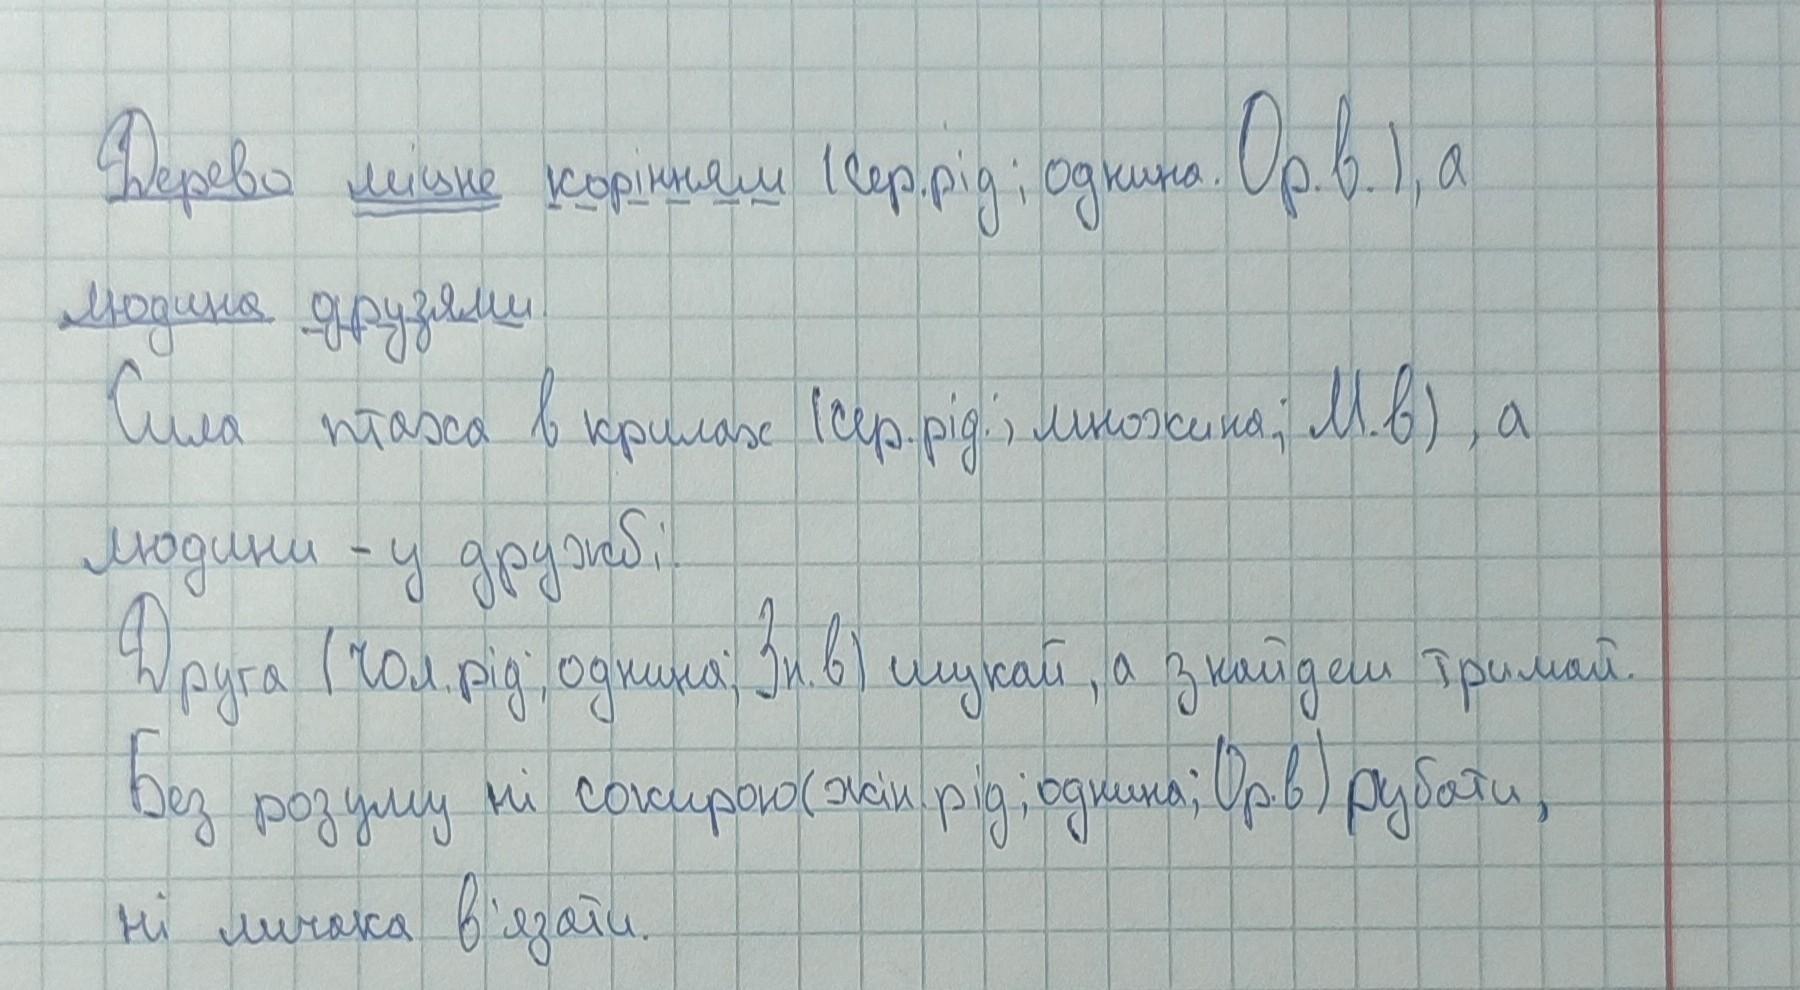 Дерево міцне корінням (сер.рід; однина. Ор.в.), а
людина друзями.
Сила птаха в крилах (сер.рід.; множина; М.в), а
людини - у дружбі.
Друга (чол.рід; однина; Зн.в) шукай, а знайдеш тримай.
Без розуму ні сокирою (жін.рід; однина; Ор.в) рубати,
ні личака в'язати.